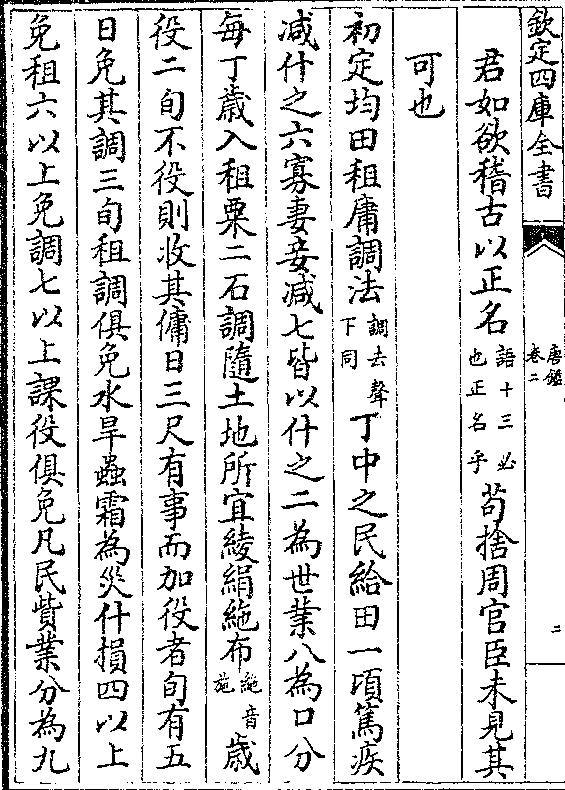 欽定四庫全書
唐鑑
卷二
二
君如欲稽古以正名語十三必也正名乎苟捨周官臣未見其
可也
初定均田租庸調法調去聲下同丁中之民給田一頃篤疾
减什之六寡妻妾减七皆以什之二為世業八為口分
每丁歳入租粟二石調隨土地所宜綾絹絁布絁音葹歳
役二旬不役則收其傭日三尺有事而加役者旬有五
日免其調三旬租調俱免水旱蟲霜為災什損四以上
免租六以上免調七以上課役俱免凡民貲業分為九